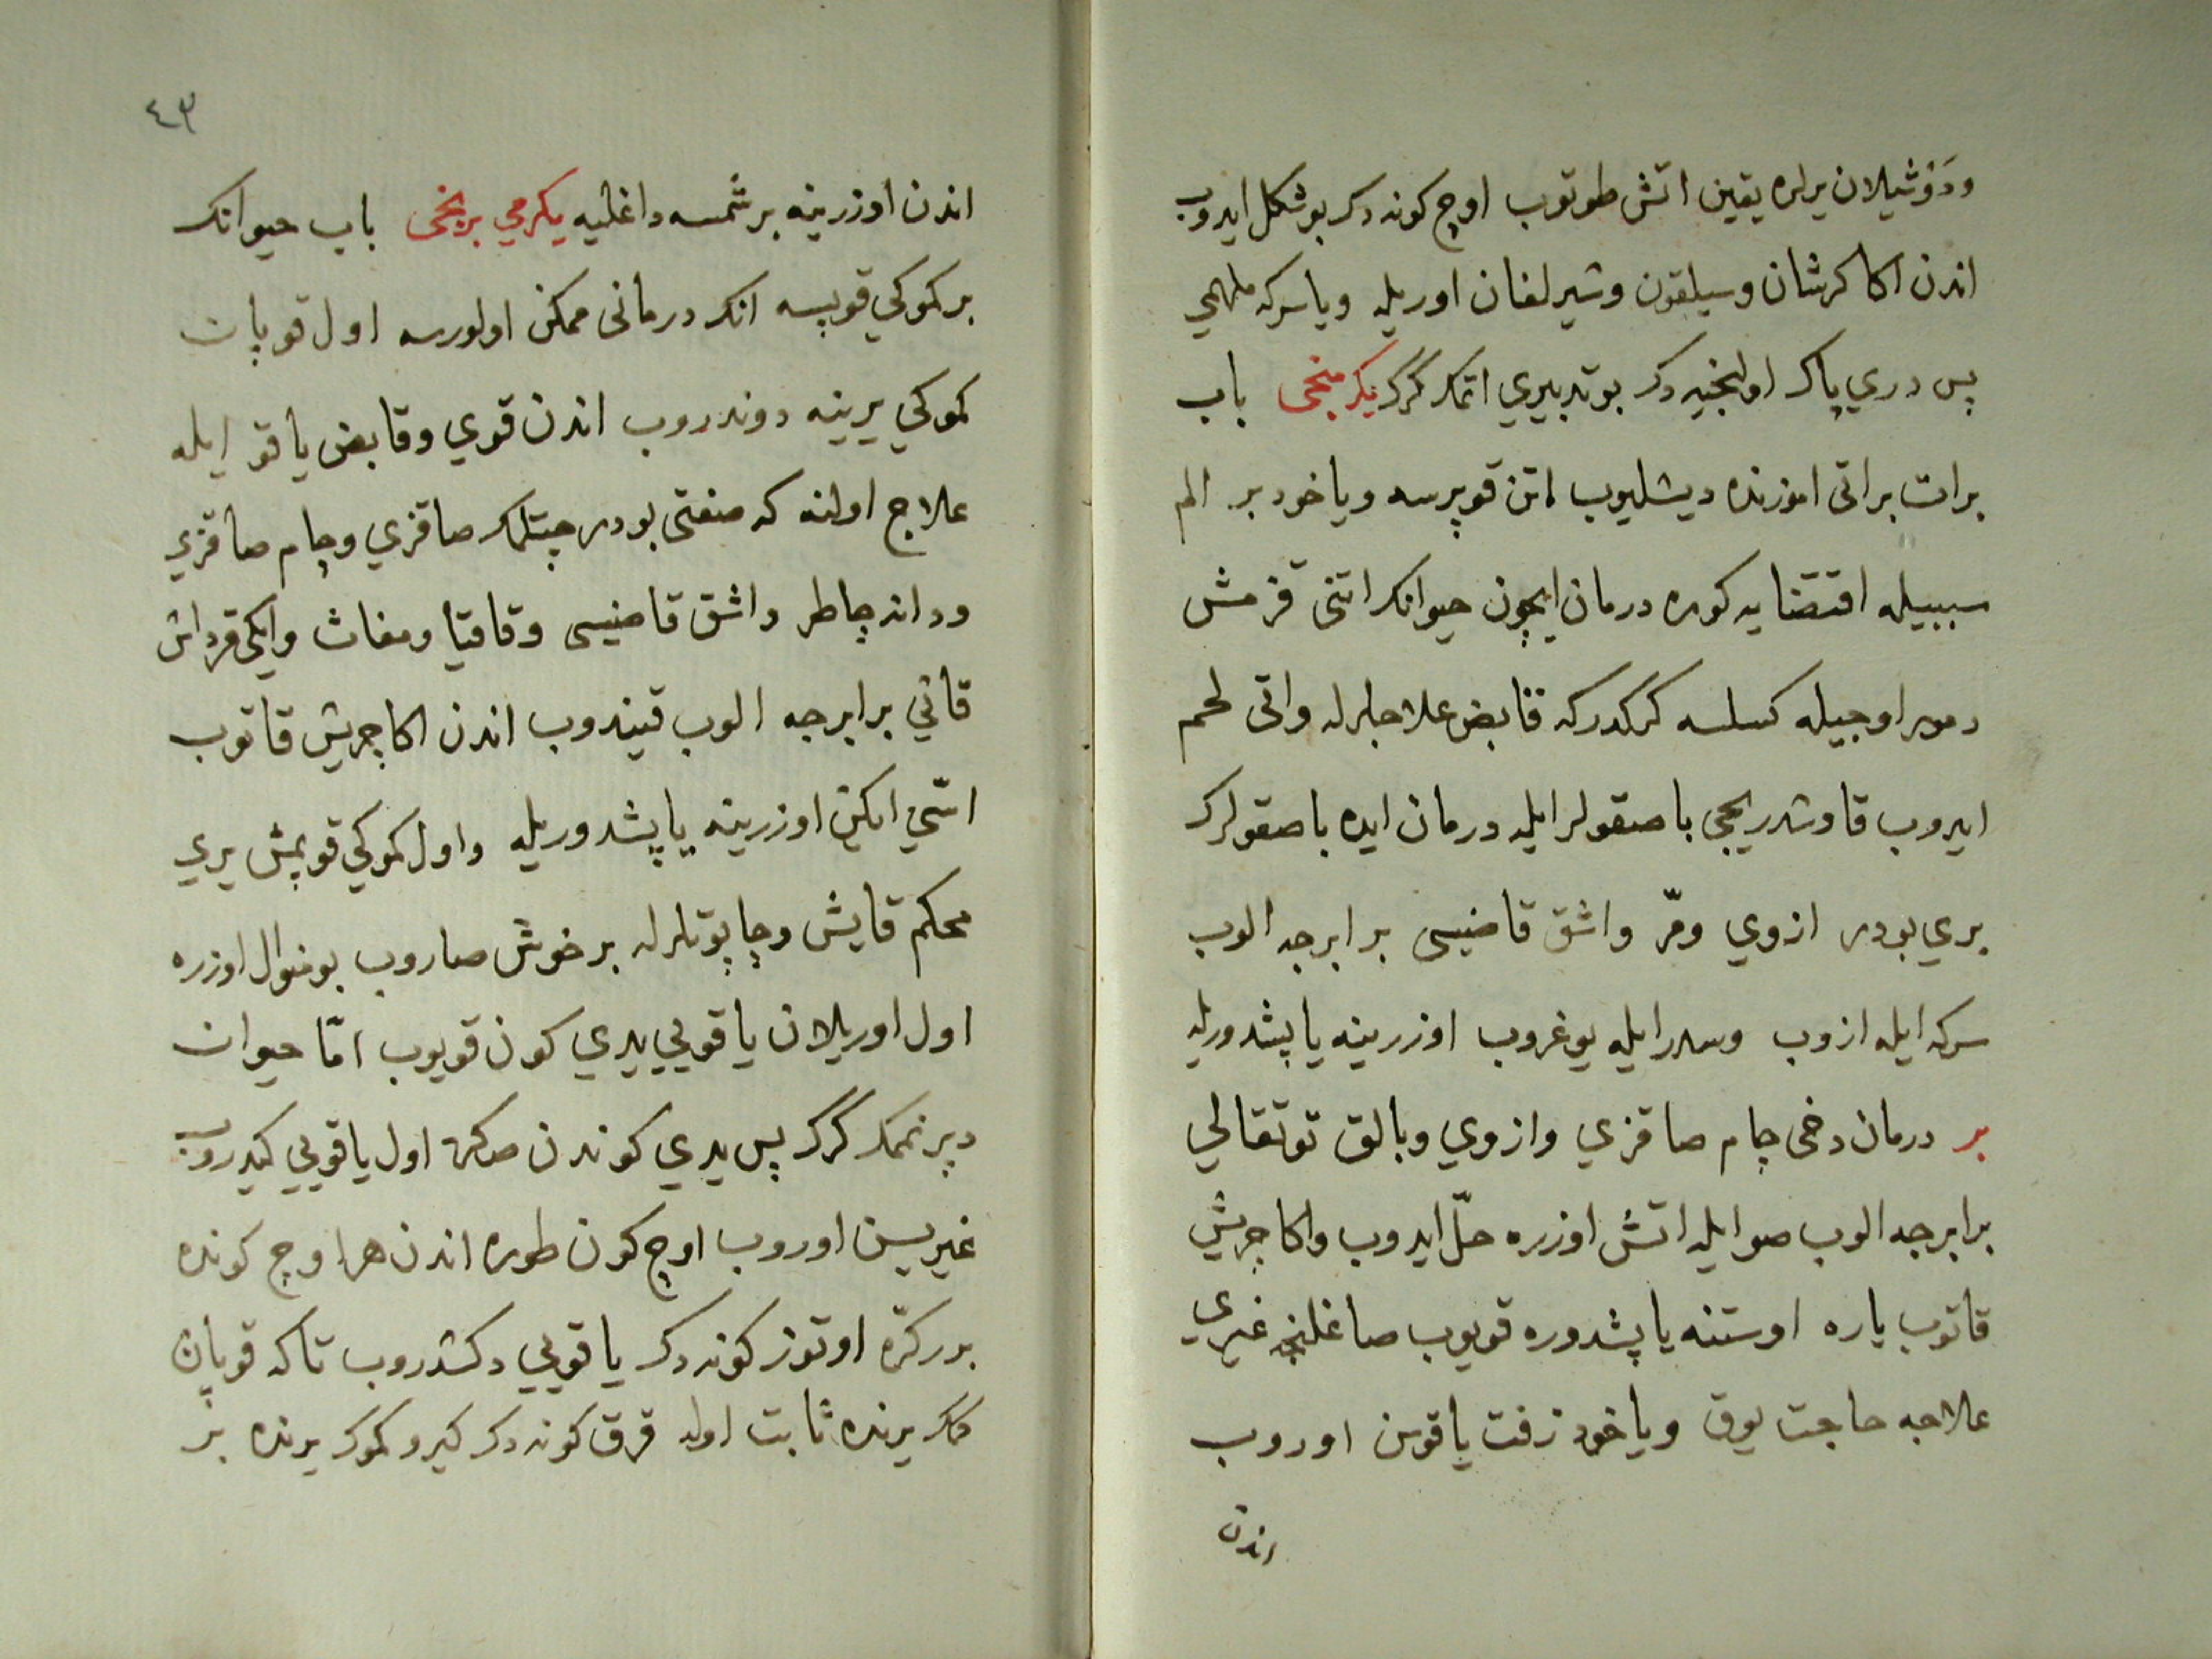 ودوشيلان يرلره يقين اتش طوتوب اوچ كونه دك بو شكل ايدوب
اندن اكا كرشان وسيلقون وشيرلغان اوريله ويا سركه ملهمي
پس دري پاك اولنجيه دك بو تدبيري اتمك كرك يكرمنجى باب
بر ات بر اتى اموزنده ديشليوب اتن قوپرسه وياخود بر الم
سببيله اقتضايه كوره درمان ايچون حيوانك اتنى قزمش
دمور اوجيله كسلسه كركدركه قابض علاجلرله واتى لحم
ايدوب قاوشدريجى باصقولر ايله درمان ايده باصقولرك
بري بودر ازوي ومرّ واشق قاضيسى برابرجه الوب
سركه ايله ازوب وسدر ايله يوغروب اوزرينه ياپشدوريله
بر درمان دخى چام صاقزي وازوي وبالق توتقالي
برابرجه الوب صو ايله اتش اوزره حلّ ايدوب واكا چريش
قاتوب ياره اوستنه ياپشدوره قويوب صاغلنجه غيري
علاجه حاجت يوق وياخود زفت ياقوسن اوروب
اندن
٤٣
اندن اوزرينه بر شمسه داغليه يكرمي برنجى باب حيوانك
بر كموكي قوپسه انك درمانى ممكن اولورسه اول قوپان
كموكي يرينه دوندروب اندن قوي وقابض ياقو ايله
علاج اولنه كه صفتى بودر چتلمك صاقزي وچام صاقزي
وداند چاطر واشق قاضيسى وقاقيا ومغاث وايكى قرداش
قاني برابرجه الوب قيندوب اندن اكا چريش قاتوب
اسّي ايكن اوزرينه ياپشدوريله واول كموكي قوپمش يري
محكم قايش وچاپوتلرله بر خوش صاروب بو منوال اوزره
اول اوريلان ياقويي يدي كون قويوب امّا حيوان
دپرنمك كرك پس يدي كوندن صكره اول ياقويي كيدروب
غيريسن اوروب اوچ كون طوره اندن هر اوچ كونده
بر كرّه اوتوز كونه دك ياقويي دكشدروب تاكه قوپان
كمك يرنده ثابت اوله قرق كونه دك كيرو كموك يرنده بر